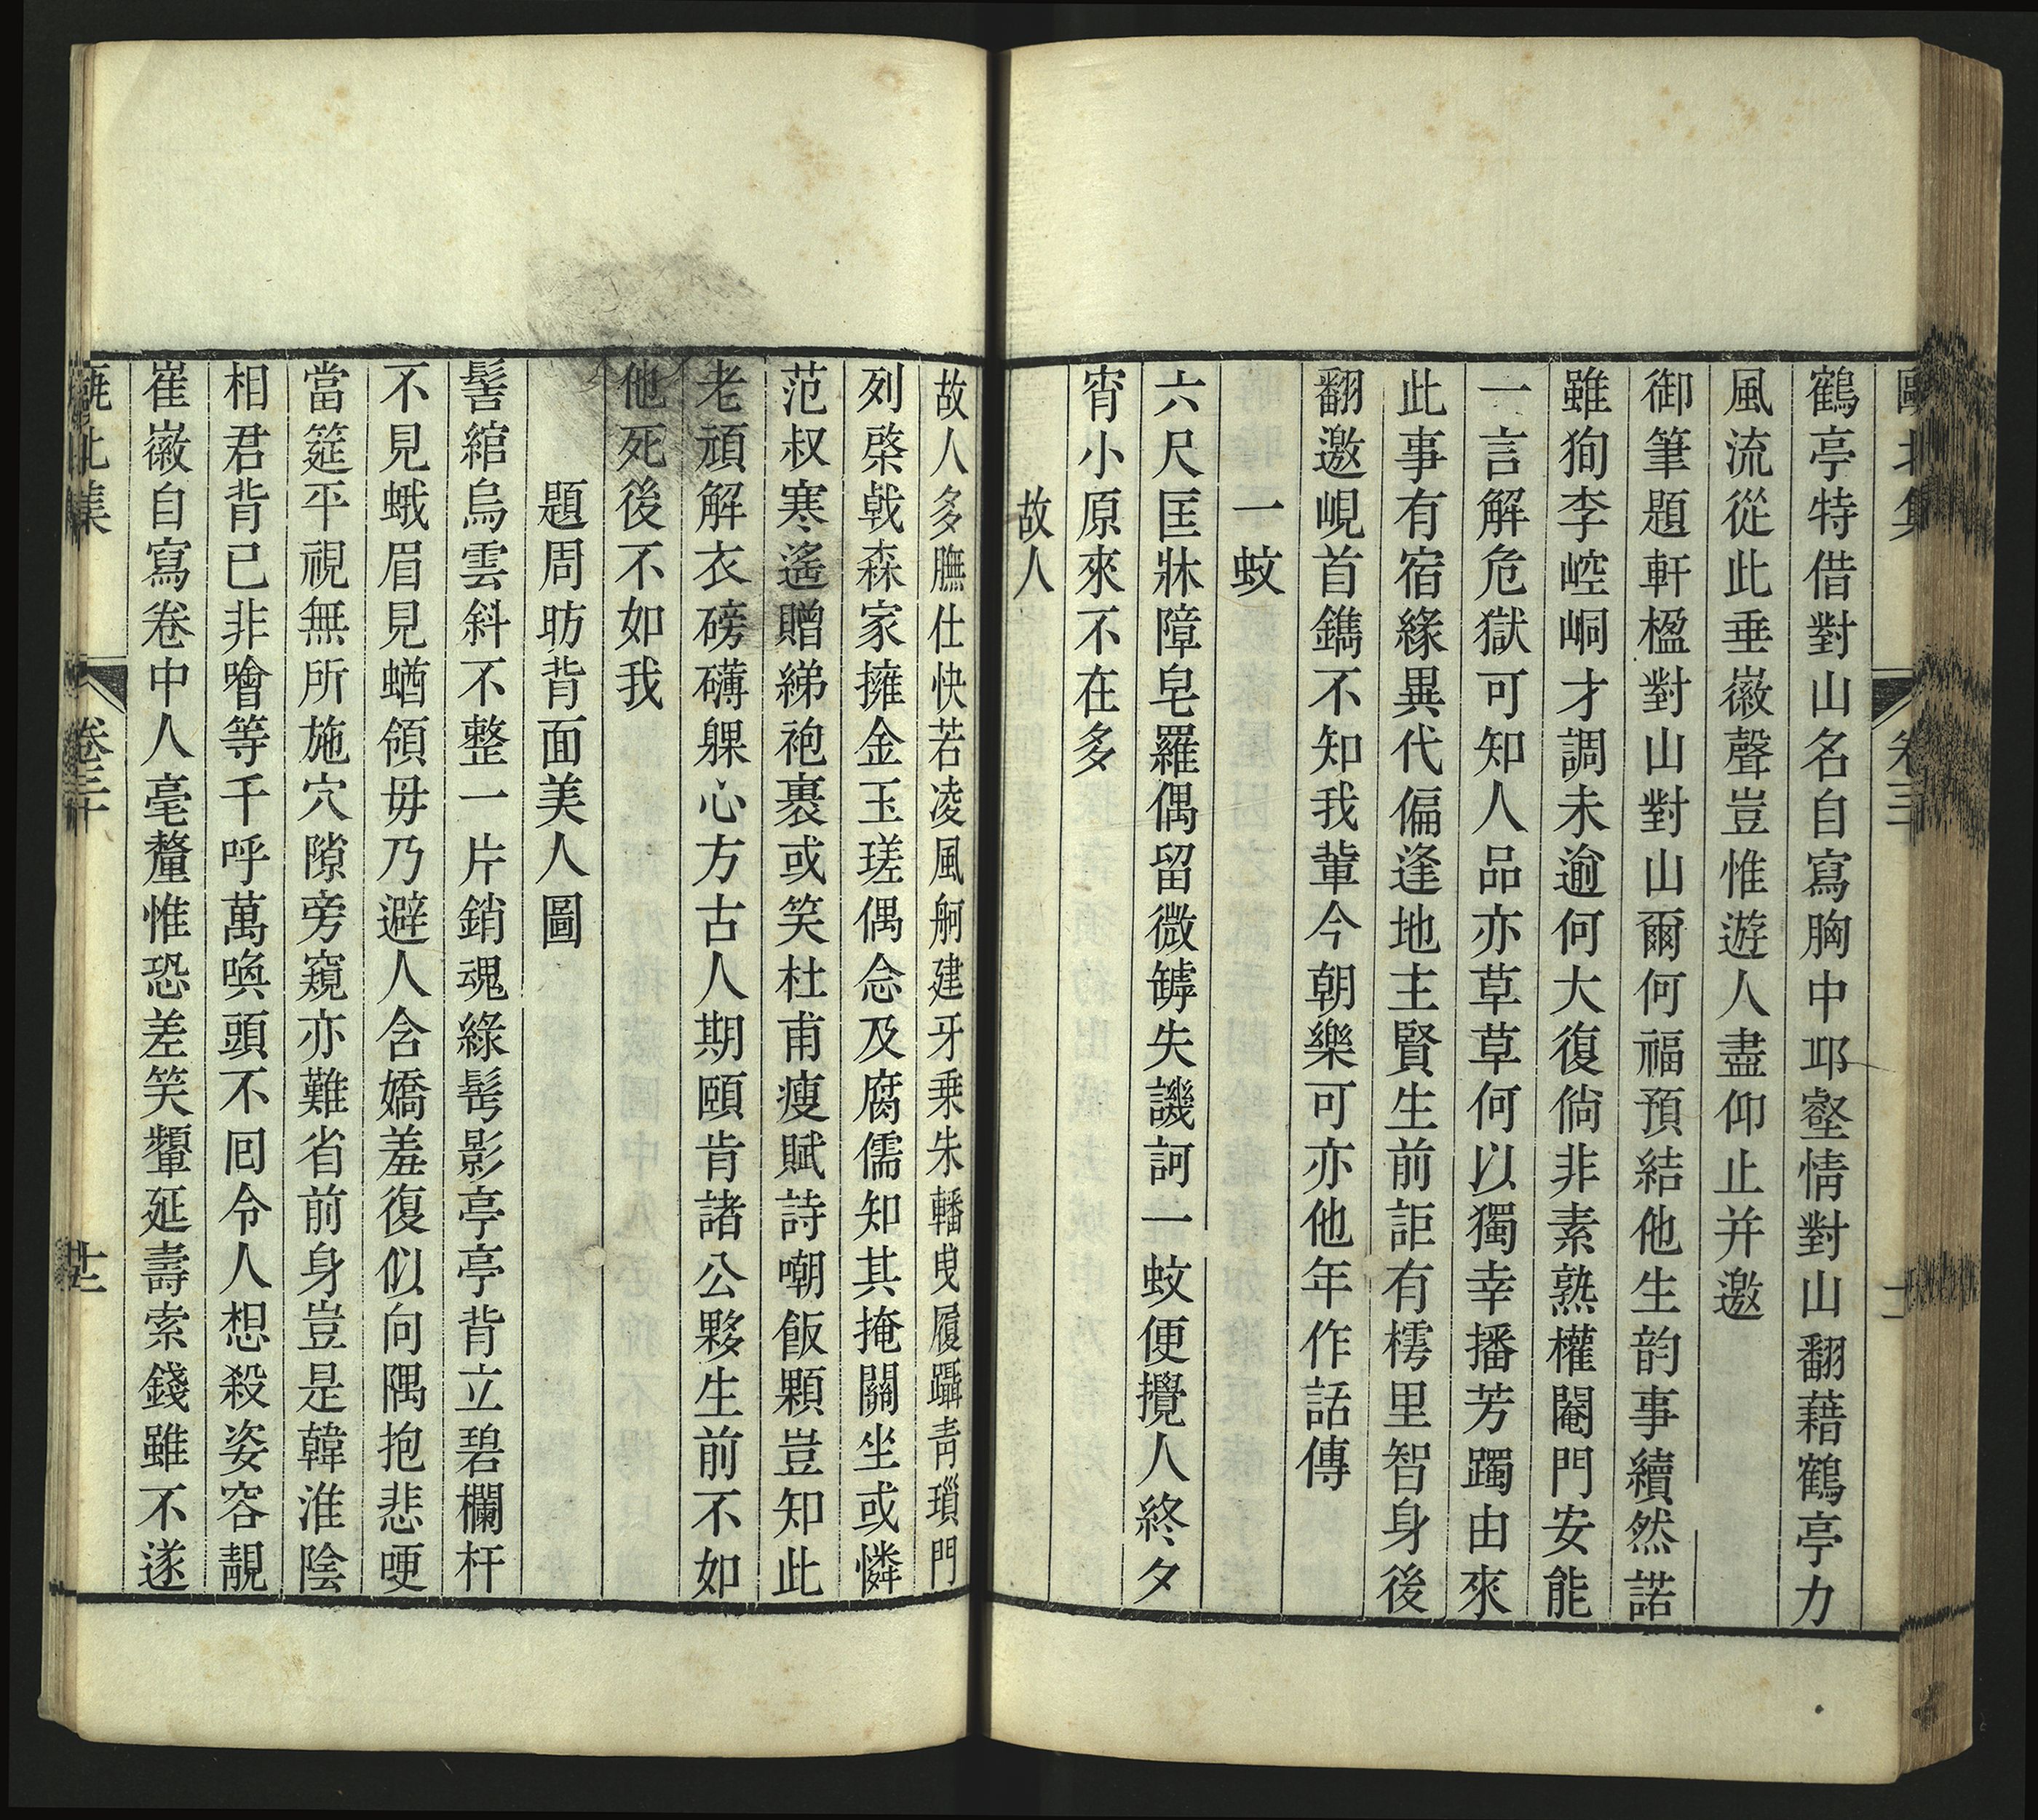 甌北集 卷三十
鶴亭特借對山名自寫胸中邱壑情對山翻藉鶴亭力
風流從此垂徽聲豈惟遊人盡仰止并邀
御筆題軒楹對山對山爾何福預結他生韵事續然諾
雖狥李崆峒才調未逾何大復倘非素熟權閹門安能
一言解危獄可知人品亦草草何以獨幸播芳躅由來
此事有宿緣異代偏逢地主賢生前詎有樗里智身後
翻邀峴首鐫不知我輩今朝樂可亦他年作話傳
一蚊
六尺匡牀障皂羅偶留微罅失譏訶一蚊便攪人終夕
宵小原來不在多
故人
故人多膴仕快若凌風舸建牙乗朱轓曳履躡青瑣門
列棨戟森家擁金玉瑳偶念及腐儒知其掩關坐或憐
范叔寒遙贈綈袍裹或笑杜甫瘦賦詩嘲飯顆豈知此
老頑解衣磅礴躶心方古人期頤肯諸公夥生前不如
他死後不如我
題周昉背面美人圖
髻綰烏雲斜不整一片銷魂綠髩影亭亭背立碧欄杆
不見蛾眉見蝤領毋乃避人含嬌羞復似向隅抱悲哽
當筵平視無所施穴隙旁窺亦難省前身豈是韓淮陰
相君背已非噲等千呼萬喚頭不囘令人想殺姿容靚
崔徽自寫卷中人毫釐惟恐差笑顰延壽索錢雖不遂
甌北集 卷三十 廿